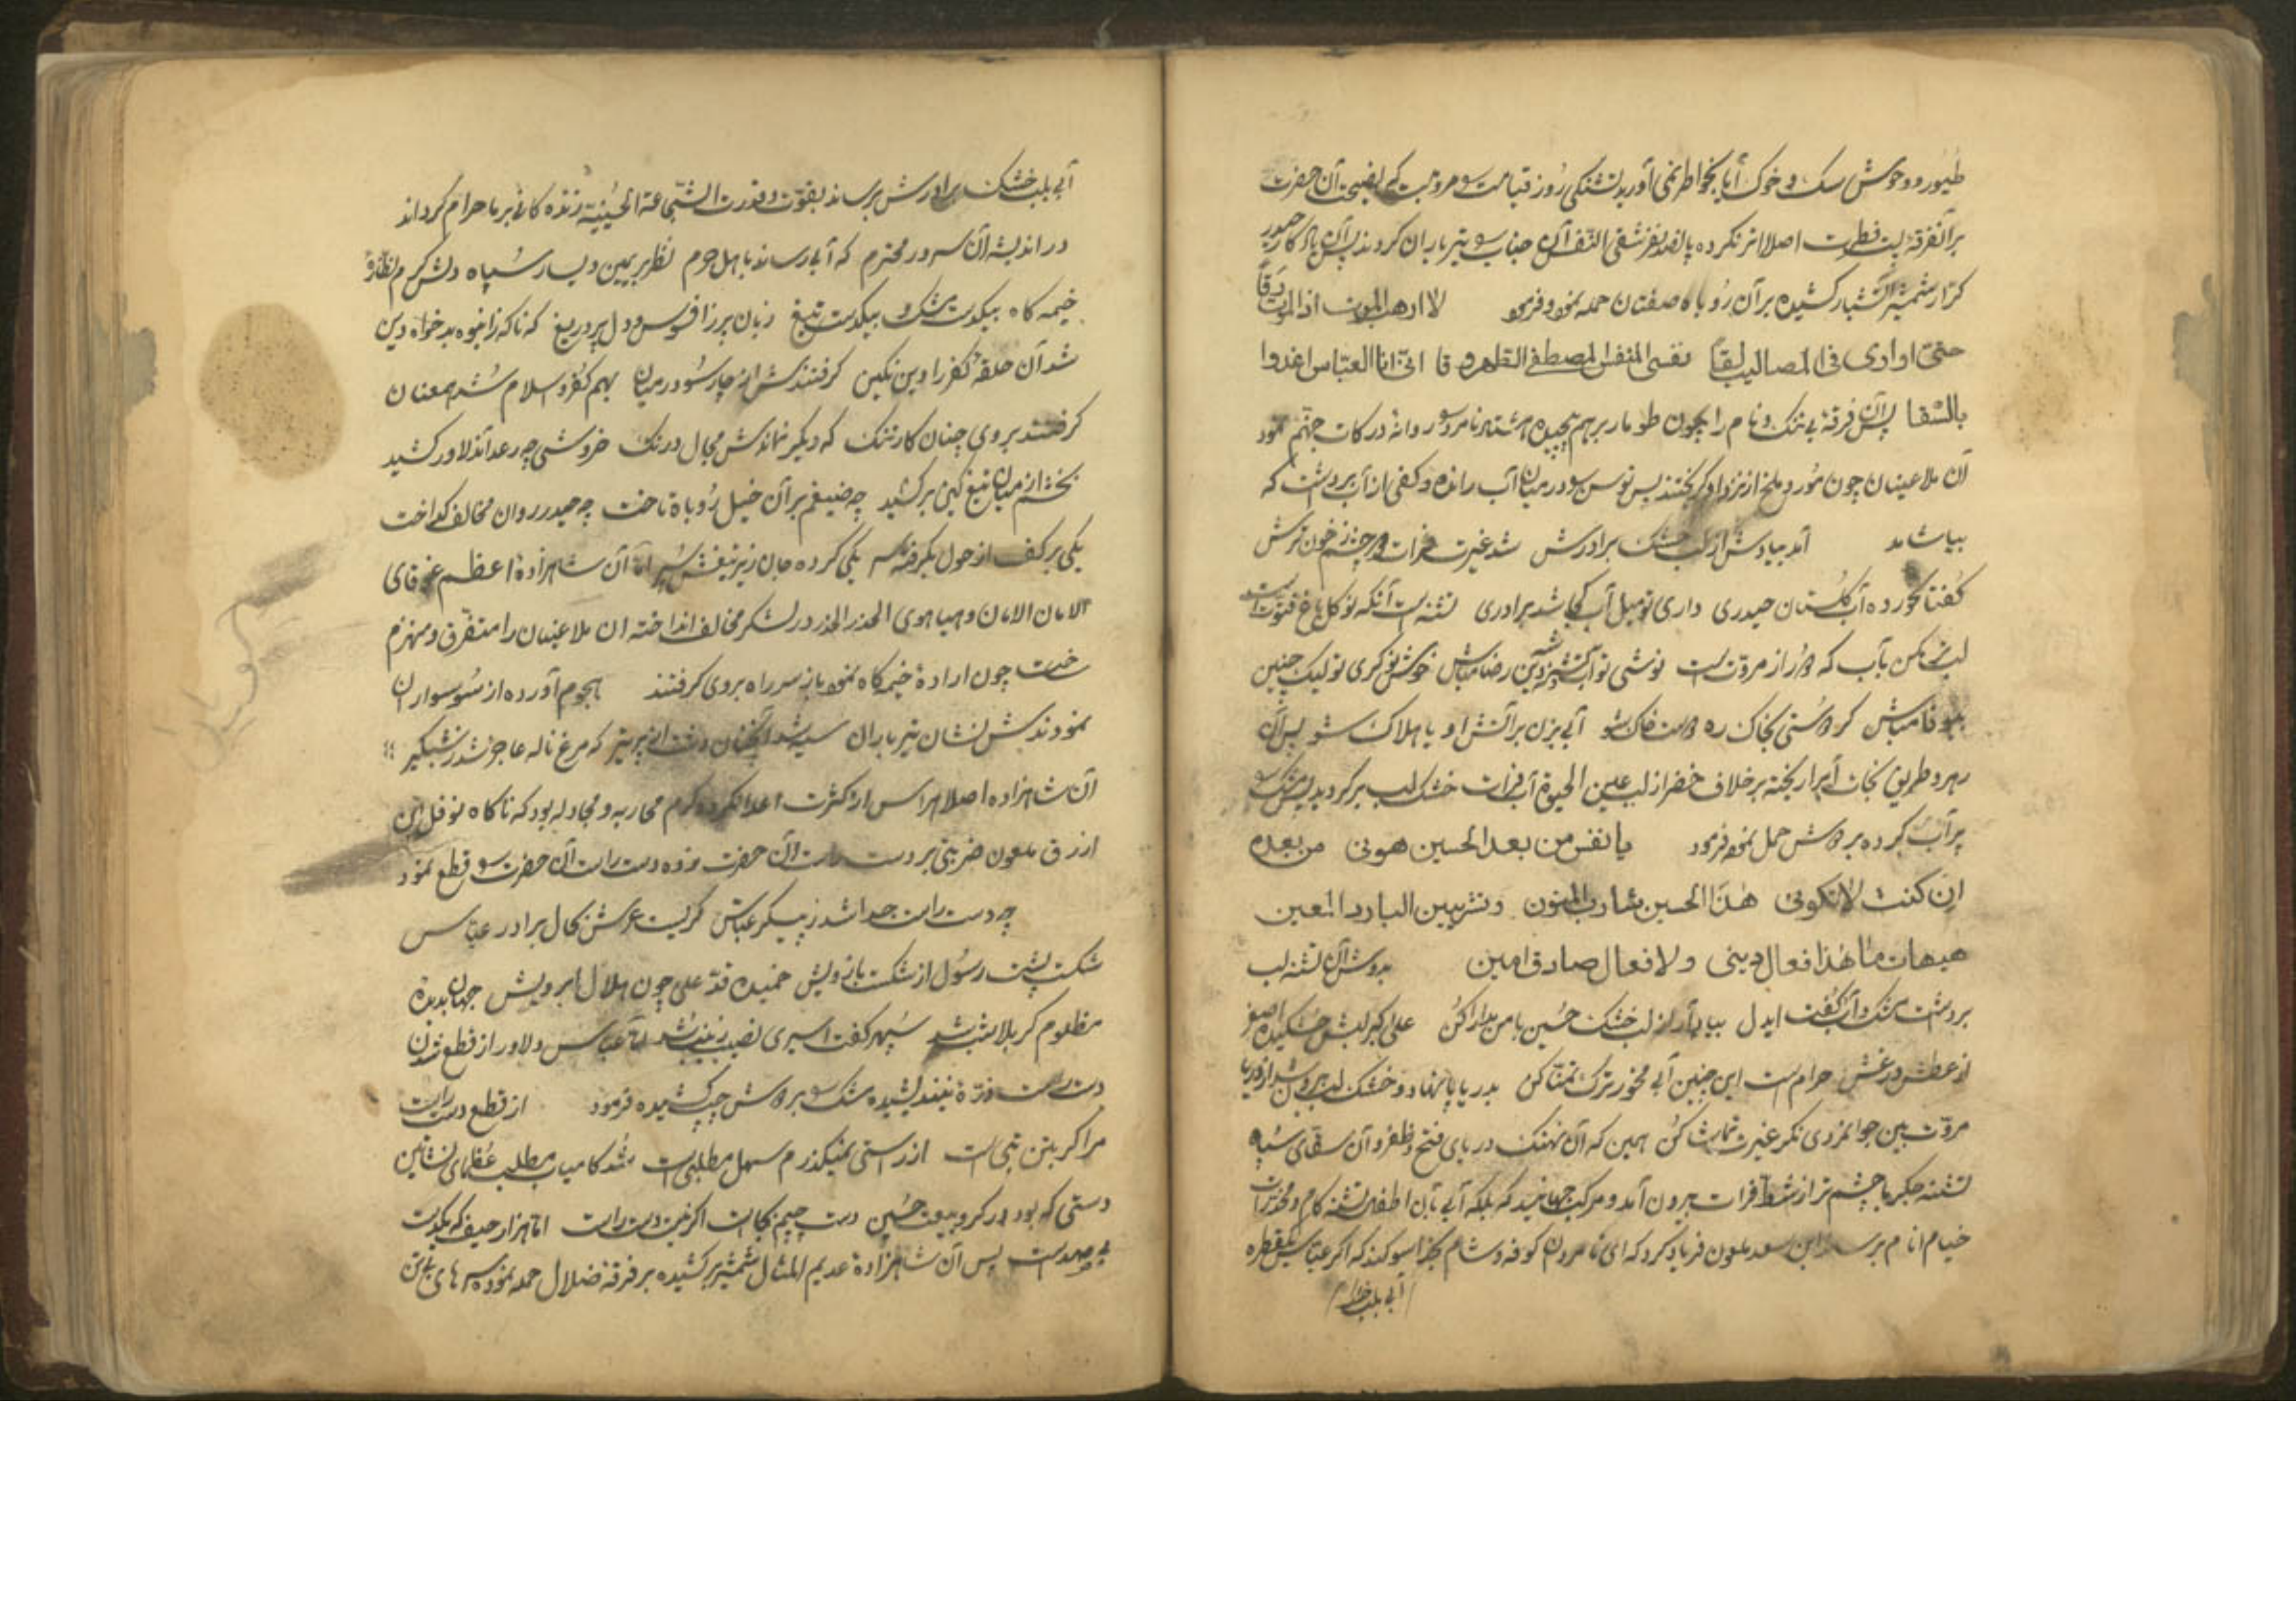 طیور و وحوش سک و خوک آیا بخواطر نمی آورید تشنکی روز قیامت و مروت نصیحت آن حضرت
اصلا اثر نکرده پانصد نفر آن جناب تیر باران کردند پس آن حیدر
کرار شمشیر آتشبار کشیده بر آن روباه صفتان حمله نمود و فرمود لا ارهب الموت اذا الموت رقا
حتی اواری فی المصالیب لقا نفسی لنفس المصطفی الطهر وقا انی انا العباس اغدوا
بالسقا پس آن فرقهٔ بی ننک و نام را همچون طومار برهم پیچیده روانه درکات جهنم نمود
آن ملاعینان چون مور و ملخ از نزد او کریختند پس در میان آب رانده و کفی از آب برداشت که
بیاشامد آمد بیادش از لب خشک برادرش شد غیرت فرات خون ترش
کفتا نخورده آب کلستان حیدری داری تو میل آب کجا شد برادری تشنه است آنکه نو کل باغ فتوت است
لب تر مکن بآب که دور از مروت است نوشی تو آب رضا مباش تو لیک چنین
بیوفا مباش بخاک ره آبی بزن بر آتش او یا هلاک شو پس آن
رهرو طریق نجات برخلاف خضر از لب عین الحیوة آب فرات خشک لب برکردید پس مشک
پر آب کرده بر دوش حمل نمود فرمود یا نفس من بعد الحسین هونی من بعده
ان کنت لا تکونی هذا الحسین شارب المنون و تشربین البارد المعین
هیهات ما هذا فعال دینی ولا فعال صادق امین بدوش آن تشنه لب
برداشت مشک و آب کفت ایدل بیاد آر از لب خشک حسین با من مدارا کن علی اکبر لبش خشکیده اصغر
از عطش در غش حرام است این چنین آبی مخور ترک تمنا کن بدریا پا نهاد و خشک لب بیرون شد از دریا
مروت بین جوانمردی نکر غیرت تماشا کن همین که آن نهنک دریای فتح و ظفر و آن سقای سپاه
تشنه جکر با چشم تر از شط فرات بیرون آمد و مرکب جهانید که بلکه آبی بآن اطفال تشنه کام و مخدرات
خیام امام برساند ابن سعد ملعون فریاد کرد که ای نامردان کوفه و شام بخدا سوکند که اکر عباس یکقطره
آبی بلب خشک
آبی بلب خشک برادرش برساند بقوت و قدرت الشجاعة الحسینیة زنده کانی بر ما حرام کرداند
در اندیشه آن سرور محترم که آبی رساند باهل حرم نظر بر یمین و یسار سپاه دلش کرم نظاره
خیمه کاه بیکدست مشک و بیکدست تیغ زبان پر ز افسوس و دل پر دریغ که ناکه ز انبوه بدخواه دین
شد آن حلقه کفر را دین نکین کرفتندش از چار سو در میان بهم کفر و اسلام شد همعنان
کرفتند بر وی چنان کار تنک که دیکر نماندش مجال درنک خروشی چو رعد آن دلاور کشید
بخشم از میان تیغ کین بر کشید چو ضیغم بر آن خیل روباه تاخت چو حیدر روان مخالف کداخت
یکی بر کف از هول بکرفته سر یکی کرده جان زیر تیغش سپر اما آن شاهزادهٔ اعظم غوغای
الامان الامان و هیاهوی الحذر الحذر در لشکر مخالف انداخته آن ملاعینان را متفرق و منهزم
ساخت چون ارادهٔ خیمه کاه نمود باز سر راه بر وی کرفتند هجوم آورده از سو سواران
نمودندش نشان تیر باران که مرغ ناله عاجز شد ز شبکیر
آن شاهزاده اصلا هراس از کثرت اعدا نکرده کرم محاربه و مجادله بود که ناکاه نوفل ابن
ازرق ملعون ضربتی بر دست راست آن حضرت زده دست راست آن حضرت قطع نمود
چو دست راست جدا شد ز پیکر عباس کریست عرش بحال برادر عباس
شکست پشت رسول از شکست بازویش خمیده قد علی چون هلال ابرویش جهان بدیدهٔ
مظلوم کربلا شب شد سپهر کفت اسیری نصیب زینب شد اما عباس دلاور از قطع شدن
دست راست ذرهٔ نیندیشیده مشک بر دوش چپ کشیده فرمود از قطع دست راست
مرا کر بتن تبی است از راستی نمیکذرم سهل مطلبی است شد کامیاب مطلب عظمای نشاتین
دستی که بود در کرو بیعت حسین دست چپم بجاست اکر نیست دست راست اما هزار حیف که یکدست
بی صداست پس آن شاهزادهٔ عدیم المثال شمشیر کشیده بر فرقهٔ ضلال حمله نموده سرهای